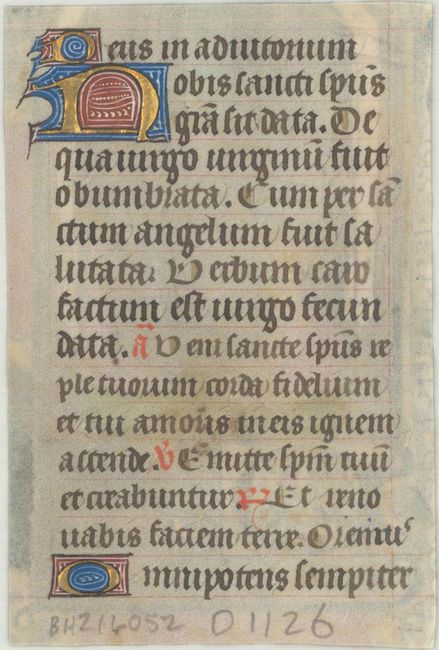 Deus in adiutorium
Nobis sancti sp̄us
gr̄a sit data. De
qua uirgo uirginū fuit
obumbrata. Cum per sā
ctum angelum fuit sa
lutata. Verbum caro
factum est uirgo fecun
data. ā Veni sancte sp̄us re
ple tuorum corda fidelium
et tui amoris in eis ignem
accende. V Emitte sp̄m tuū
et creabuntur. R Et reno
uabis faciem terre. Oremus
Omnipotens sempiter
BH216052 01126